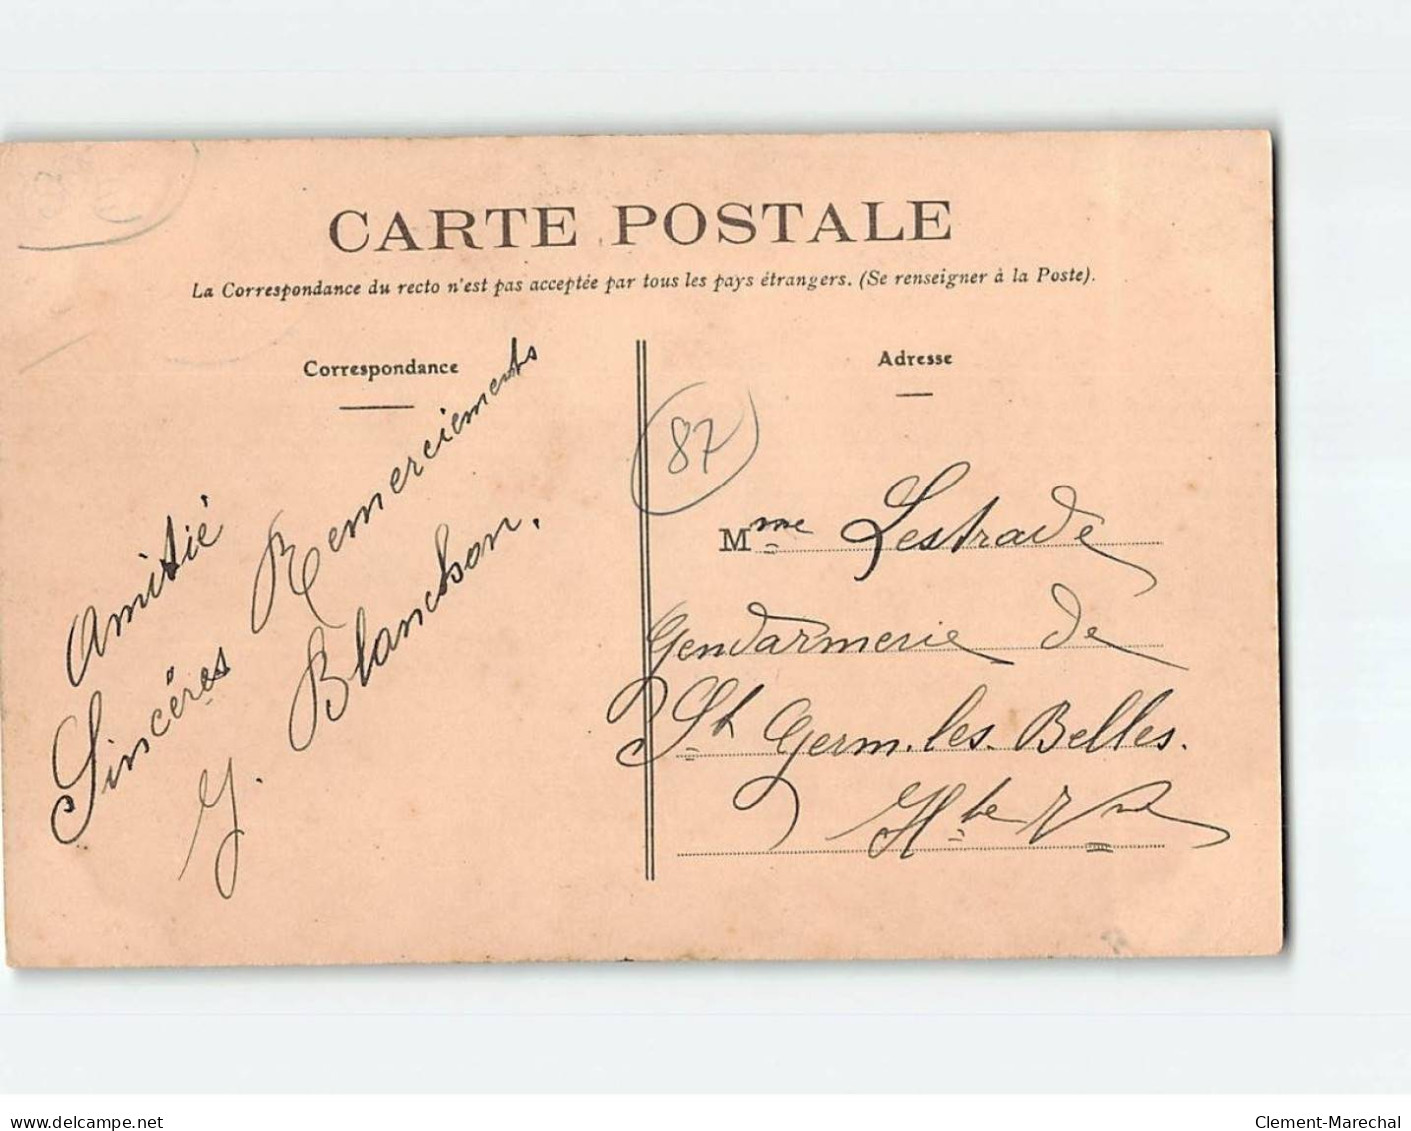 CARTE POSTALE
La Correspondance du recto n'est pas acceptée par tous les pays étrangers. (Se renseigner à la Poste).
Correspondance
Amitié
Sincéres Remerciements
G. Blanchon.
Adresse
87
Mme Lestrade
Gendarmerie de
St Germ. les. Belles.
Hte Vne
www.delcampe.net
Clement-Marechal